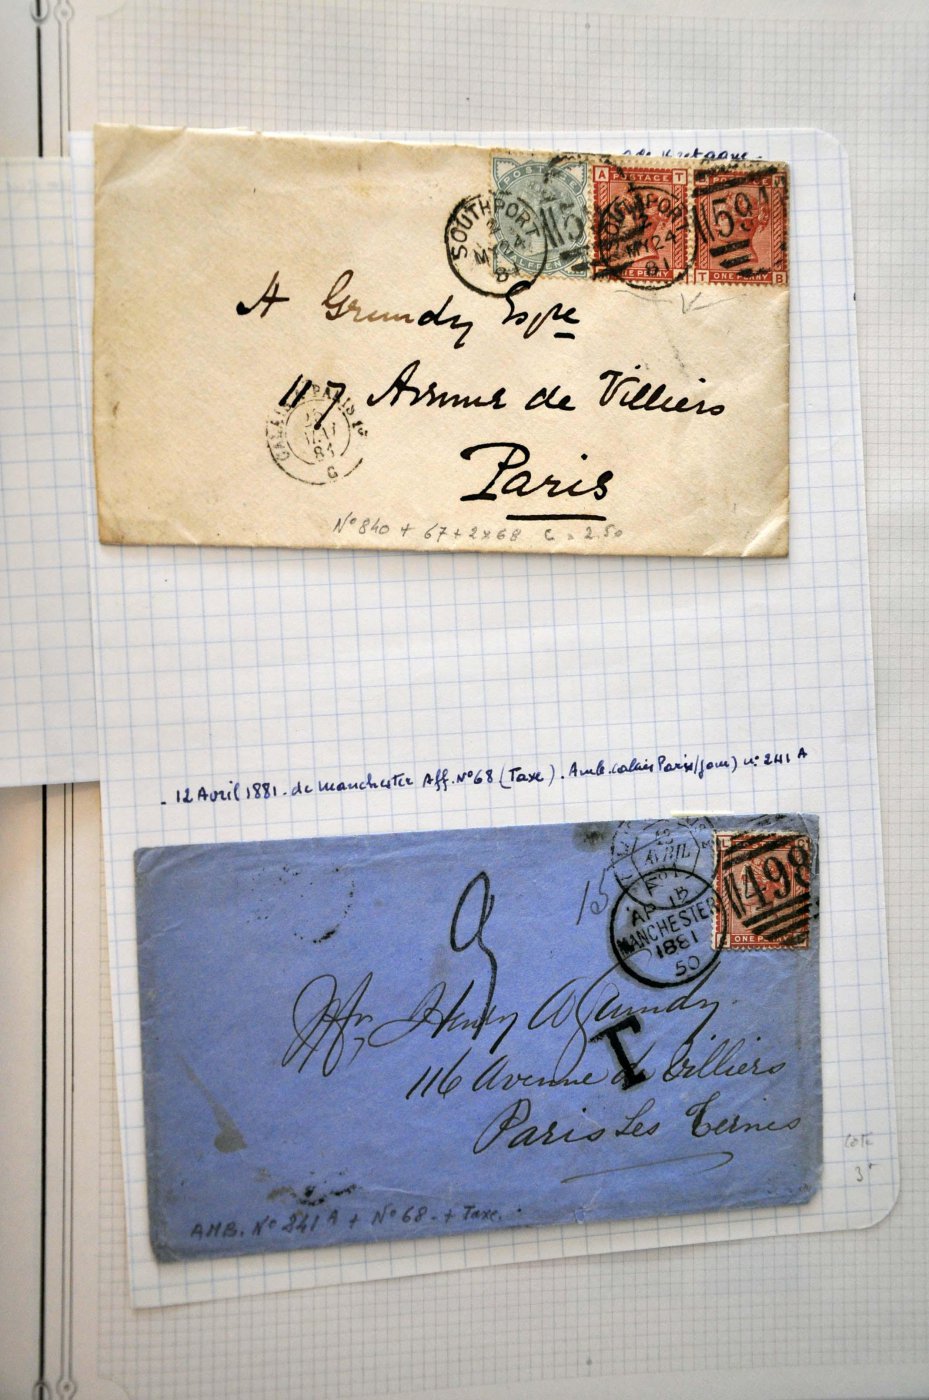 A T
POSTAGE
SOUTHPORT
MY 24
81
SOUTHPORT
MY 24
81
59
ONE PENNY
T B
ONE PENNY
A Grundy Esqre
117 Avenue de Villiers
Paris
CALAIS A PARIS
81
G
No 840 + 67 + 2 x 68 C = 2.50
- 12 Avril 1881 - de Manchester Aff. No 68 (Taxe). Amb. Calais Paris (jour) no 241 A
AVRIL
15
AP 1
MANCHESTER
1881
50
498
ONE PENNY
T
Henry A Grundy
116 Avenue de Villiers
Paris Les Ternes
AMB. No 241 A + No 68 - + Taxe.
Cote